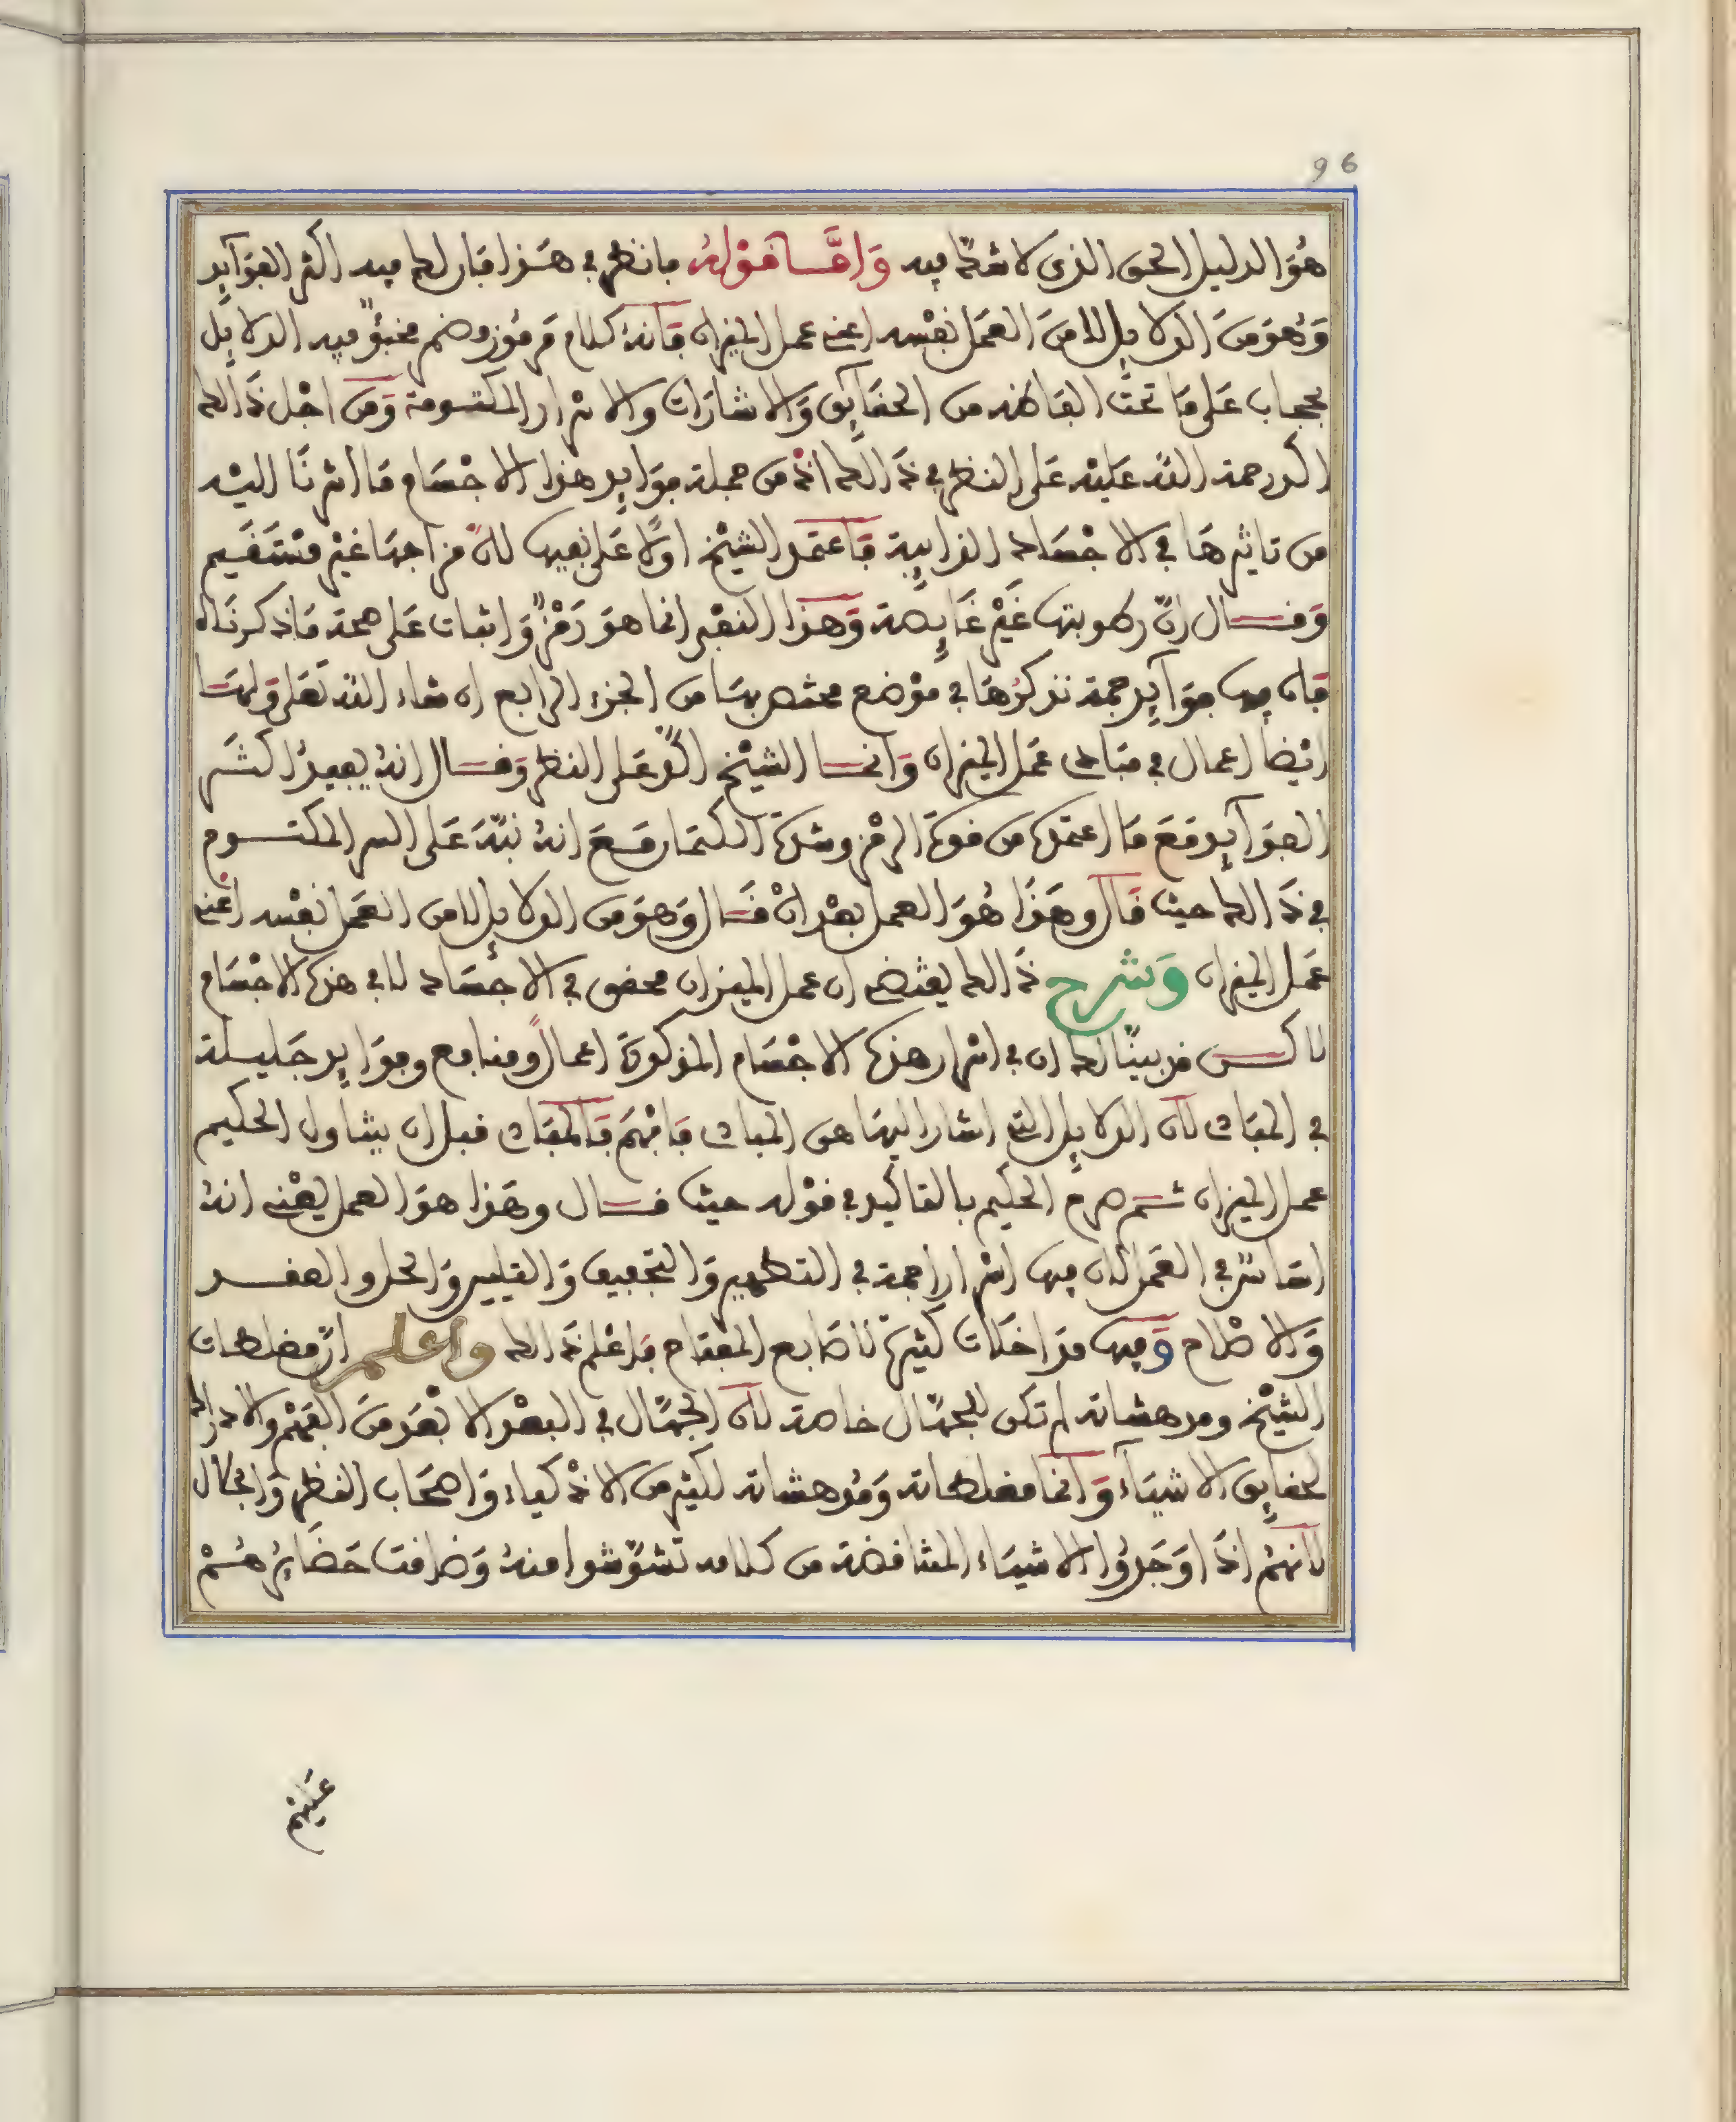 96
هُوَ الدليل الحق الذي لا شكّ فيه وَامَّا قَوْلهُ فانظر في هَذا فان لك فيه اكثر الفوَآيد
وَهُوَ مِنَ الدلايل لا مِنَ العمَل نفْسه اعني عمل الميزان فَانهُ كلام مَرموُز وضم مخبوٌ فيه الدلايل
بحجاب عَلى مَا تحتَ الفاظه من الحقآيق وَالاشارَات والاسْرار المكتومة وَمن اجْل ذَالك
اكد رحمة اللّه عليْه عَلى النظر في ذَالك اذْ من جملة فوَايد هذه الاجْسَام مَا اشرنَا اليْه
من تاثيرهَا في الاجْسَاد الذايبة فَاعتمَد الشيْخ اولًا عَلى نفيها لانّ مزاجهَا غيْر مسْتَقيم
وَقال انّ رطوبتها غَيْر غَايصة وَهَذا النفْي انما هوَ رَمْزٌ وَاثبات عَلى صحة مَا ذكرنَاه
فَان فيها فوَآيد جمة نذكرُهَا في موْضع مختص بهَا من الجزء الرابع ان شاء اللّه تعَلى وَلهَا
ايْضا اعمال في مبَادي عمَل الميزان وَانما الشيْخ اكّدْ عَلى النظر وَقال انهُ يفيدُ اكثر
الفوَآيد مَعَ مَا اعتمَده من قوة الرمْز وشدة الكتمَان مَعَ انهُ نبّهَ عَلى السر المكتوم
في ذَالك حيث قَال وهَذا هُوَ العمل بعْد انْ قَال وَهوَ مِنَ الدلايل لا من العمَل نفْسه اعْني
عمَل الميزان وَشرح ذَالك يقتضي ان عمل الميزان محقق في الاجْسَاد لا في هذه الاجْسَام
لاكن قد بينَّا لك ان في اسْرار هذه الاجْسَام المذكورَة اعمالاً ومنافع وفوَايد جَليلة
في المبَادي لانَّ الدلايل التي اشار اليهَا هي المبادي فافْهَم فَالمبَادي قبل ان يتناول الحكيم
عمل الميزان ثم صرح الحكيم بالتاكيد في قوْله حيث قال وهَذا هوَ العمل يعْني انهُ
اسَاسٌ في العمَل لان فيها اسْراراً جمة في التطهير وَالتجفيف وَالتليين وَالحل والعقد
وَالاصْلاح وَفيها مدَاخَلات كثيرة لاصَابع المفتاح فَاعْلم ذَالك واعلم ان مغلطات
الشيْخ ومدهشاته لم تكن للجهّال خاصة لان الجهّال في البعْد الابْعَد مِنَ الفهْم والادراك
لحقايق الاشيَآء وَانما مغلطاته وَمُدهشاته لكثير من الاذْكياء وَاصحَاب النظر وَالمجَال
لانهُم اذَا وَجَدُوا الاشيَاء المتناقضة من كلامه تشوّشوا منهُ وَضاقت حَضَايرُهُمْ
عَليْهم